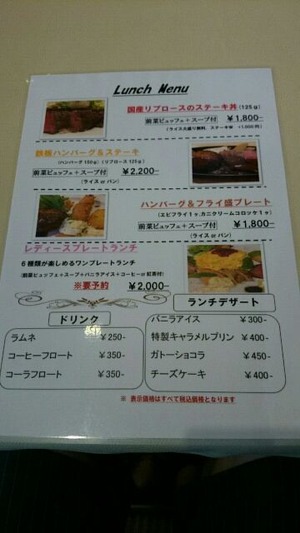 Lunch Menu
国産リブロースのステーキ丼(125g)
前菜ビュッフェ+スープ付 ¥1,800-
(ライス大盛り無料、ステーキW +1,000円)
鉄板ハンバーグ&ステーキ
(ハンバーグ 150g)(リブロース 125g)
前菜ビュッフェ+スープ付 ¥2,200-
(ライス or パン)
ハンバーグ&フライ盛プレート
(エビフライ1ヶ,カニクリームコロッケ1ヶ)
前菜ビュッフェ+スープ付 ¥1,800-
(ライス or パン)
レディースプレートランチ
6種類が楽しめるワンプレートランチ
(前菜ビュッフェ+スープ+バニラアイス+コーヒーor紅茶付)
※要予約 ¥2,000-
ドリンク
ラムネ ¥250-
コーヒーフロート ¥350-
コーラフロート ¥350-
ランチデザート
バニラアイス ¥300-
特製キャラメルプリン ¥400-
ガトーショコラ ¥450-
チーズケーキ ¥400-
※ 表示価格はすべて税込価格となります